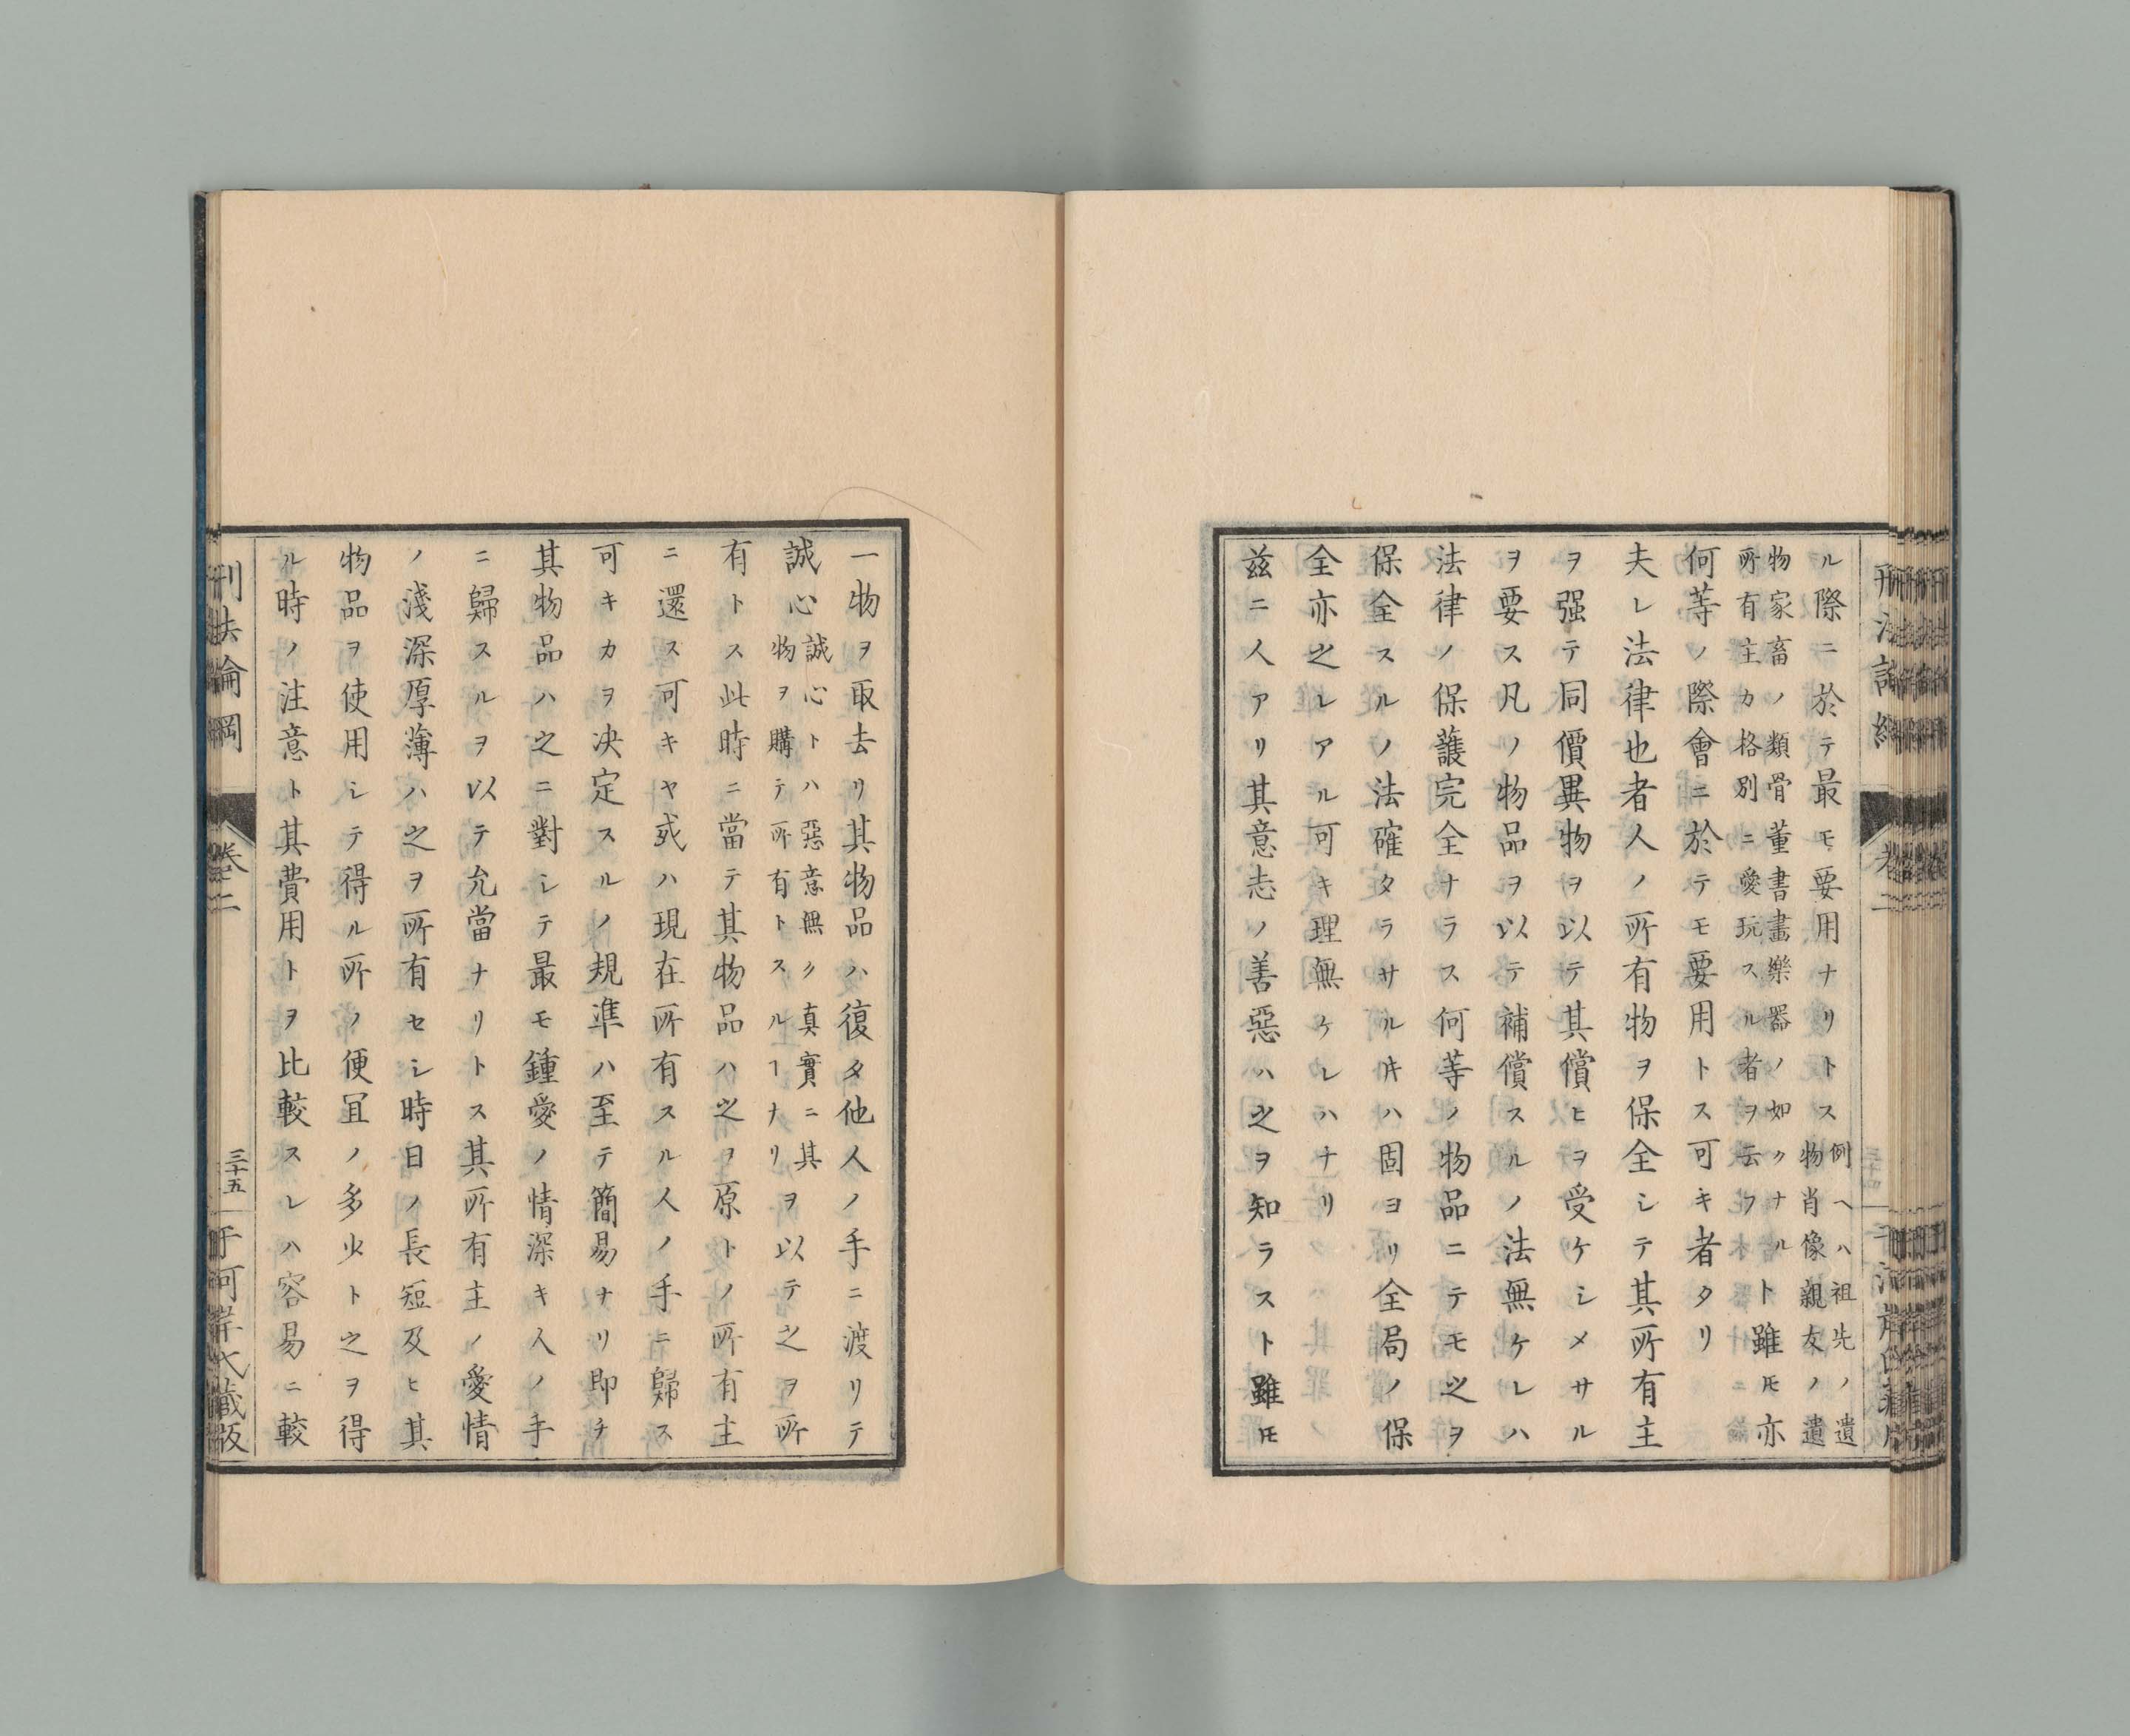 ル際ニ於テ最モ要用ナリトス
例ヘハ祖先ノ遺
物肖像親友ノ遺
物家畜ノ類骨董書畫樂器ノ如クナル
所有主カ格別ニ愛玩スル者ヲ云フ
ト雖𪜈亦
何等ノ際會ニ於テモ要用トス可キ者タリ
夫レ法律也者人ノ所有物ヲ保全シテ其所有主
ヲ强テ同價異物ヲ以テ其償ヒヲ受ケシメサル
ヲ要ス凡ノ物品ヲ以テ補償スルノ法無ケレハ
法律ノ保護完全ナラス何等ノ物品ニテモ之ヲ
保全スルノ法確タラサル片ハ固ヨリ全局ノ保
全亦之レアル可キ理無ケレハナリ
茲ニ人アリ其意志ノ善惡ハ之ヲ知ラスト雖𪜈
一物ヲ取去リ其物品ハ復タ他人ノ手ニ渡リテ
誠心
誠心トハ惡意無ク真實ニ其
物ヲ購テ所有トスルヿナリ
ヲ以テ之ヲ所
有トス此時ニ當テ其物品ハ之ヲ原トノ所有主
ニ還ス可キヤ或ハ現在所有スル人ノ手ニ歸ス
可キカヲ决定スルノ規準ハ至テ簡易ナリ即チ
其物品ハ之ニ對シテ最モ鍾愛ノ情深キ人ノ手
ニ歸スルヲ以テ允當ナリトス其所有主ノ愛情
ノ淺深厚薄ハ之ヲ所有セシ時日ノ長短及ヒ其
物品ヲ使用シテ得ル所ノ便冝ノ多少ト之ヲ得
ル時ノ注意ト其費用トヲ比較スレハ容易ニ較
刑法論綱
卷二
三十五
河岸氏藏版